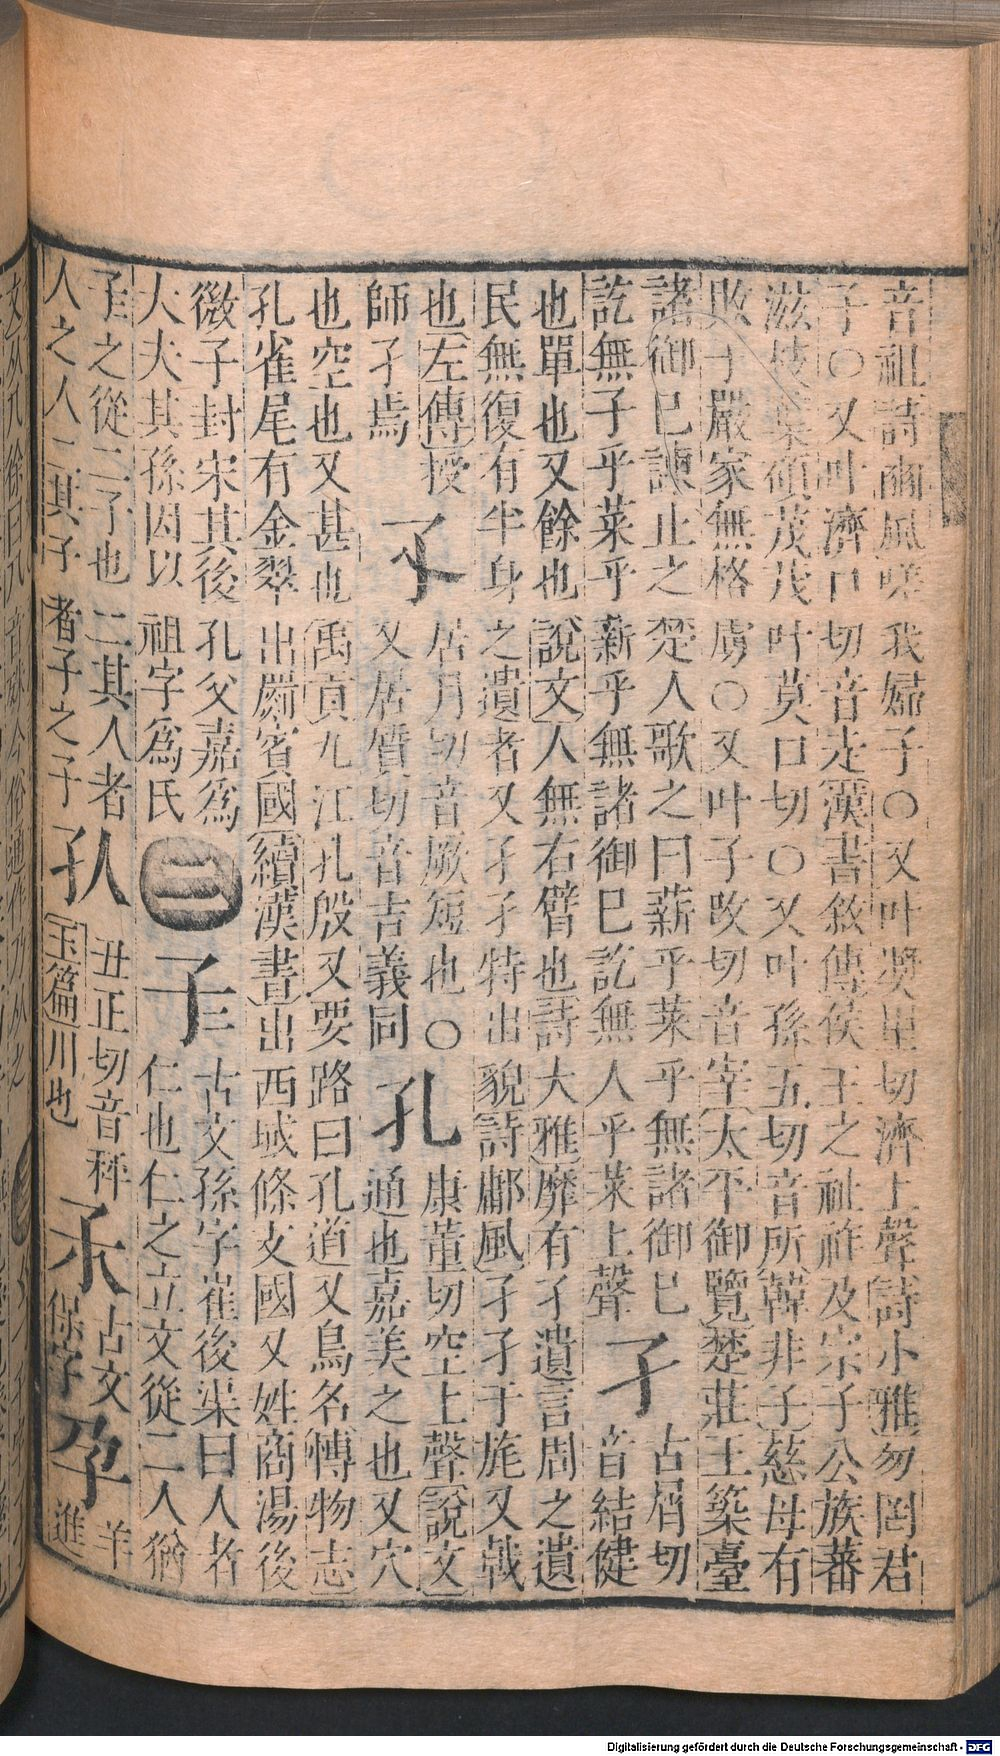 音祖詩豳風嗟我婦子○又叶奬里切濟上聲詩小雅勿罔君
子○又叶濟口切音走漢書敘傳侯王之祉祚及宗子公族蕃
滋枝葉碩茂茂叶莫口切○又叶孫五切音所韓非子慈母有
敗子嚴家無格虜○又叶子改切音宰太平御覽楚莊王築臺
諸御巳諫止之楚人歌之曰薪乎萊乎無諸御巳
訖無子乎菜乎薪乎無諸御巳訖無人乎萊上聲
孑
古屑切
音結健
也單也又餘也說文人無右臂也詩大雅靡有孑遺言周之遺
民無復有半身之遺者又孑孑特出貌詩鄘風孑孑于旄又戟
也左傳授
師孑焉
孓
居月切音厥短也○
又居質切音吉義同
孔
康董切空上聲說文
通也嘉美之也又穴
也空也又甚也禹貢九江孔殷又要路曰孔道又鳥名博物志
孔雀尾有金翠出罽賓國續漢書出西域條支國又姓商湯後
微子封宋其後孔父嘉為
大夫其孫因以祖字為氏
二
古文孫字崔後渠曰人者
仁也仁之立文從二人猶
子之從二子也二其人者
人之人二其子者子之子
㐲
丑正切音秤
玉篇川也
古文
保字
孕
羊
進
Digitalisierung gefördert durch die Deutsche Forschungsgemeinschaft - DFG